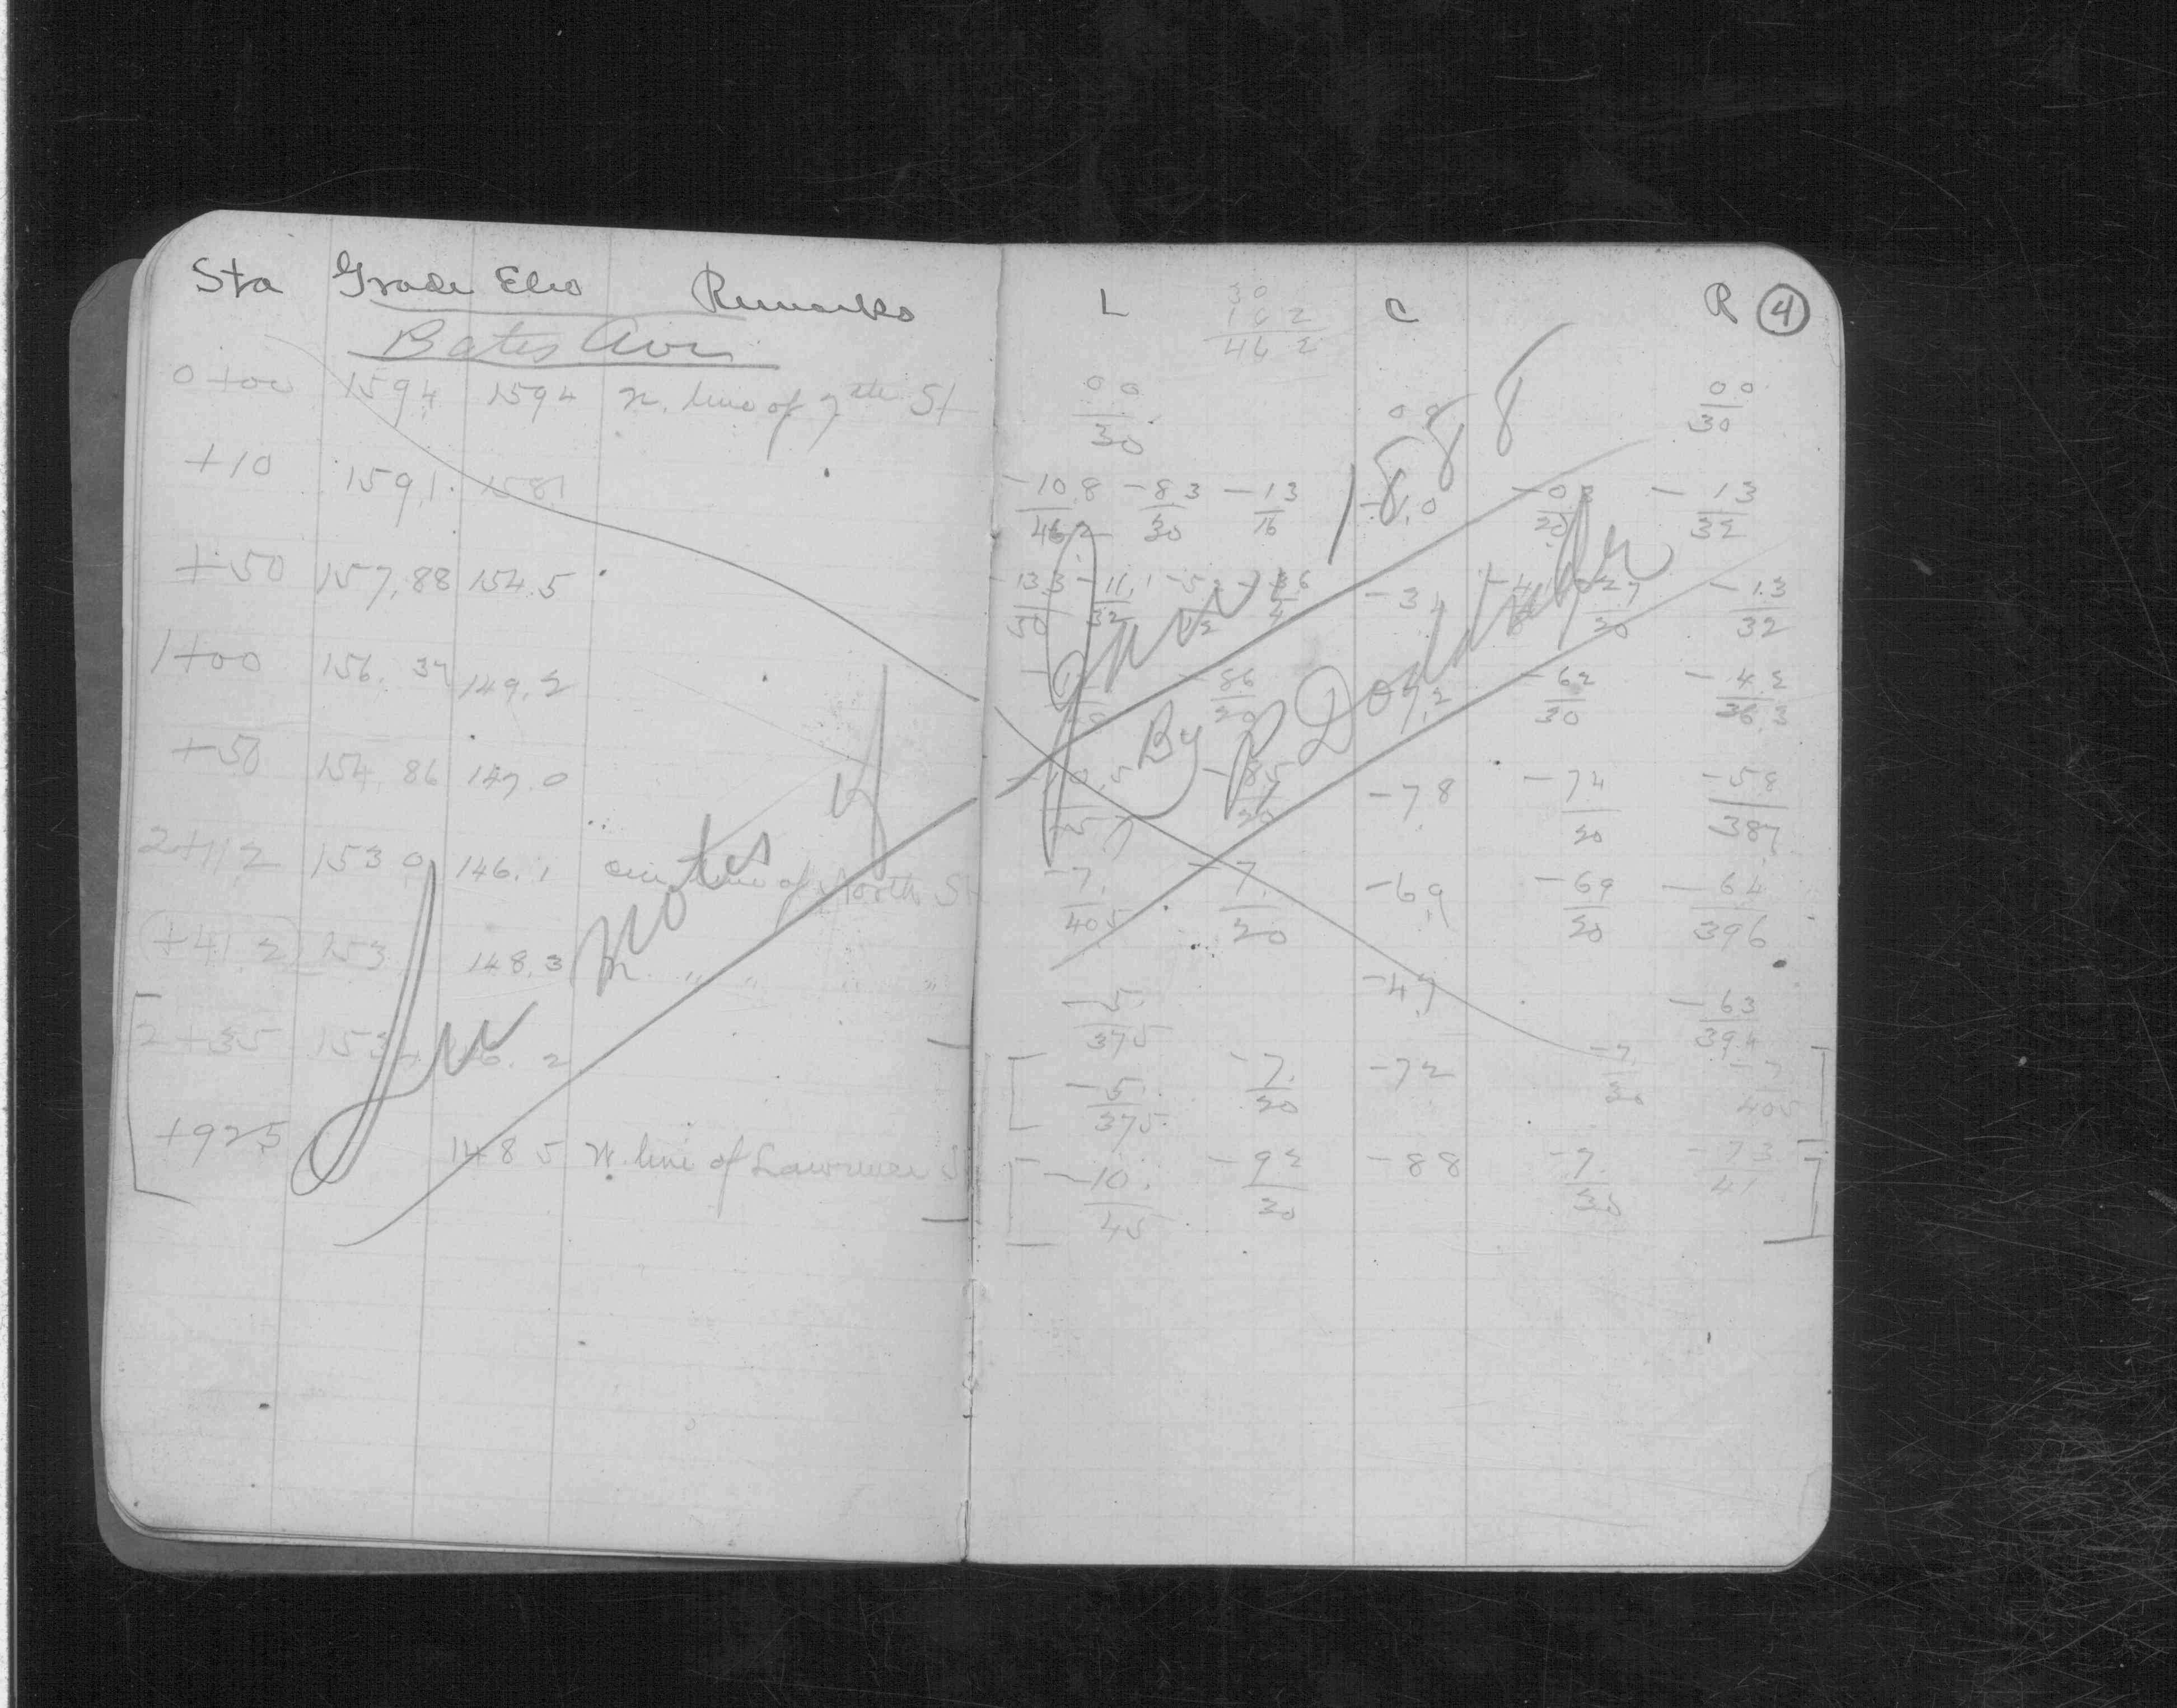 Sta Grade Elev Remarks
Bates Ave
0+00 159.4 159.4 N. line of 7th St
+10 159.1 158.1
+50 157.88 154.5
1+00 156.37 149.2
+50 154.86 147.0
2+11.2 153.0 146.1 line of North St
(+41.2) 153 148.3 N. " " "
2+35 153 146.2
+92.5 148.5 N. line of Lawrence
See Notes of June 1888
By P Doddridge
L C R 4
30
16 2
46 2
00/30 00 00/30
-10.8/46.2 -8.3/30 -1.3/16 -1.0 -0.8/20 -1.3/32
-13.3/50 -11.1/32 -5.2/12 -3.6/4 -3.4 -2.7/20 -1.3/32
-8.6/20 -7.2 -6.2/30 -4.2/36.3
-8.5/20 -7.8 -7.4/20 -5.8/38.7
-7./40.5 -7./20 -6.9 -6.9/20 -6.4/39.6
-5./37.5 -4.7 -6.3/39.4
-5./37.5 -7./30 -7.2 -7./30 -7./40.5
-10./45 -9.2/30 -8.8 -7./30 -7.3/41